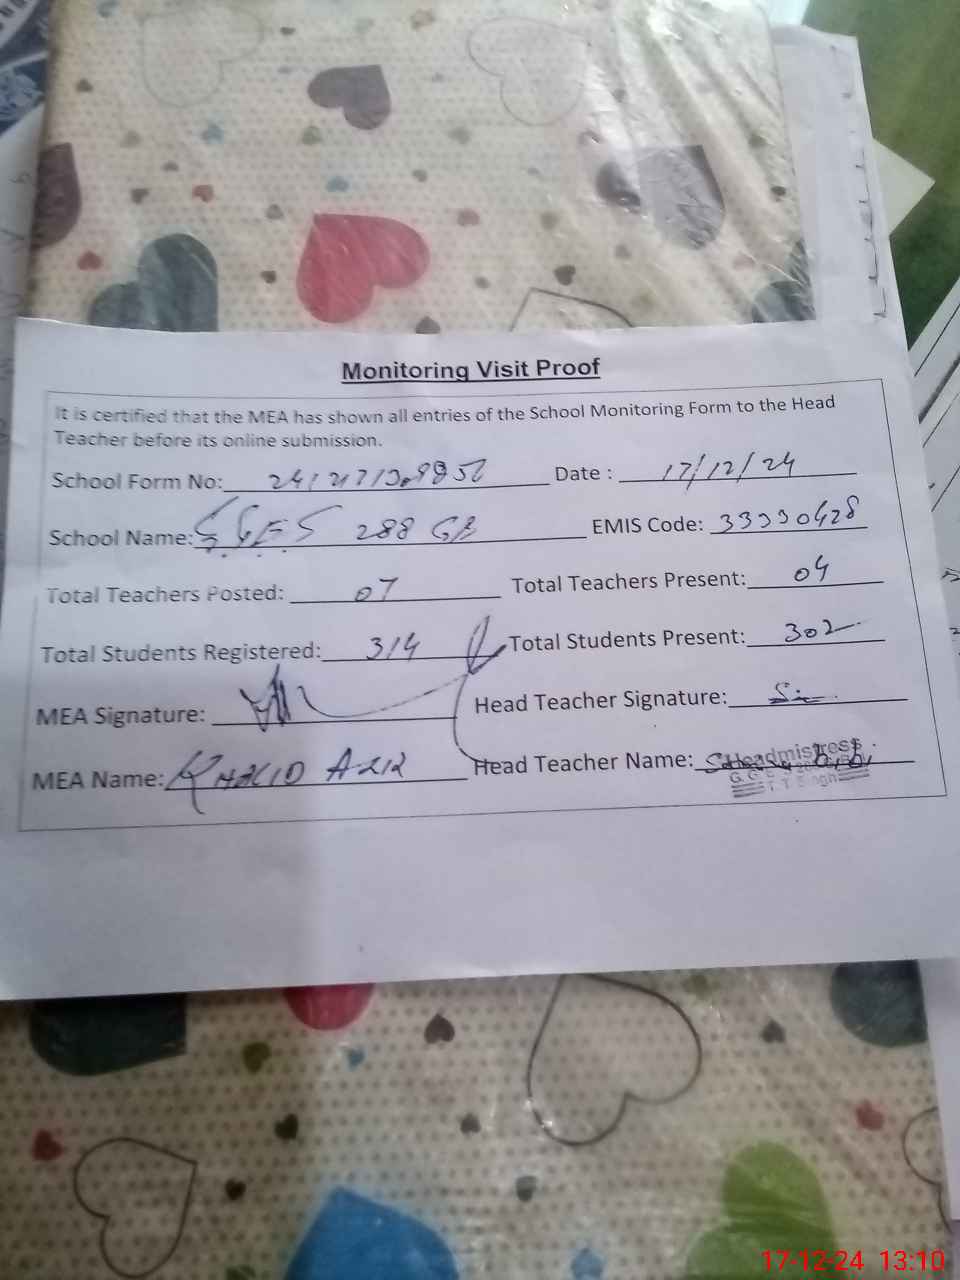 Monitoring Visit Proof
It is certified that the MEA has shown all entries of the School Monitoring Form to the Head
Teacher before its online submission.
School Form No: Date : 17/12/24
School Name: 288 GB EMIS Code: 33330428
Total Teachers Posted: 07 Total Teachers Present: 04
Total Students Registered: 314 Total Students Present: 302
MEA Signature: Head Teacher Signature:
MEA Name: KHALID AZIZ Head Teacher Name:
Headmistress
T. T. Singh
17-12-24 13:10